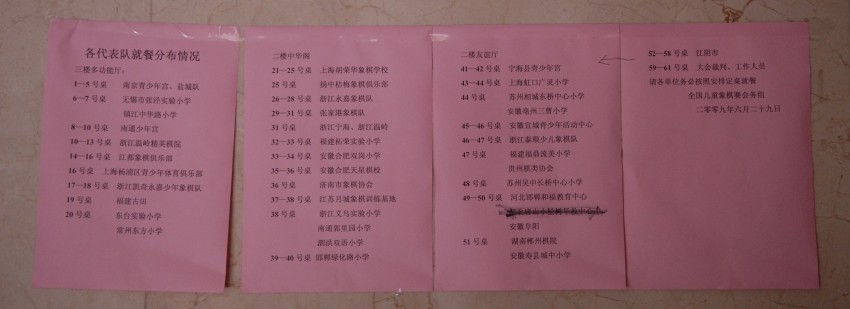 各代表队就餐分布情况
三楼多功能厅：
1—5号桌 南京青少年宫、盐城队
6—7号桌 无锡市张泾实验小学
镇江中华路小学
8—10号桌 南通少年宫
10—13号桌 浙江温岭精英棋院
14—16号桌 江都象棋俱乐部
16号桌 上海杨浦区青少年体育俱乐部
17—18号桌 浙江凯奇永嘉少年象棋队
19号桌 福建古田
20号桌 东台实验小学
常州东方小学
二楼中华阁
21—25号桌 上海胡荣华象棋学校
25号桌 扬中桔梅象棋俱乐部
26—28号桌 浙江永嘉象棋队
29—31号桌 张家港象棋队
31号桌 浙江宁海、浙江温岭
32—33号桌 福建柘荣实验小学
33—34号桌 安徽合肥双岗小学
35—36号桌 安徽合肥天星棋校
36号桌 济南市象棋协会
37—38号桌 江苏月城象棋训练基地
38号桌 浙江义乌实验小学
南通郭里园小学
泗洪双语小学
39—40号桌 邯郸绿化路小学
二楼友谊厅
41—42号桌 宁海县青少年宫
43—44号桌 上海虹口广灵小学
44号桌 苏州相城东桥中心小学
安徽亳州三曹小学
45—46号桌 安徽宣城青少年活动中心
46—47号桌 浙江泰顺少儿象棋队
47号桌 福建福鼎流美小学
贵州棋类协会
48号桌 苏州吴中长桥中心小学
49—50号桌 河北邯郸和福教育中心
安徽阜阳
51号桌 湖南郴州棋院
安徽寿县城中小学
52—58号桌 江阴市
59—61号桌 大会裁判、工作人员
请各单位务必按照安排定桌就餐
全国儿童象棋赛会务组
二零零九年六月二十九日